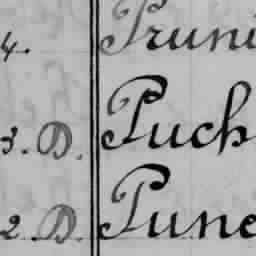 4. Pruni
3. D. Puch
2. D. Pune